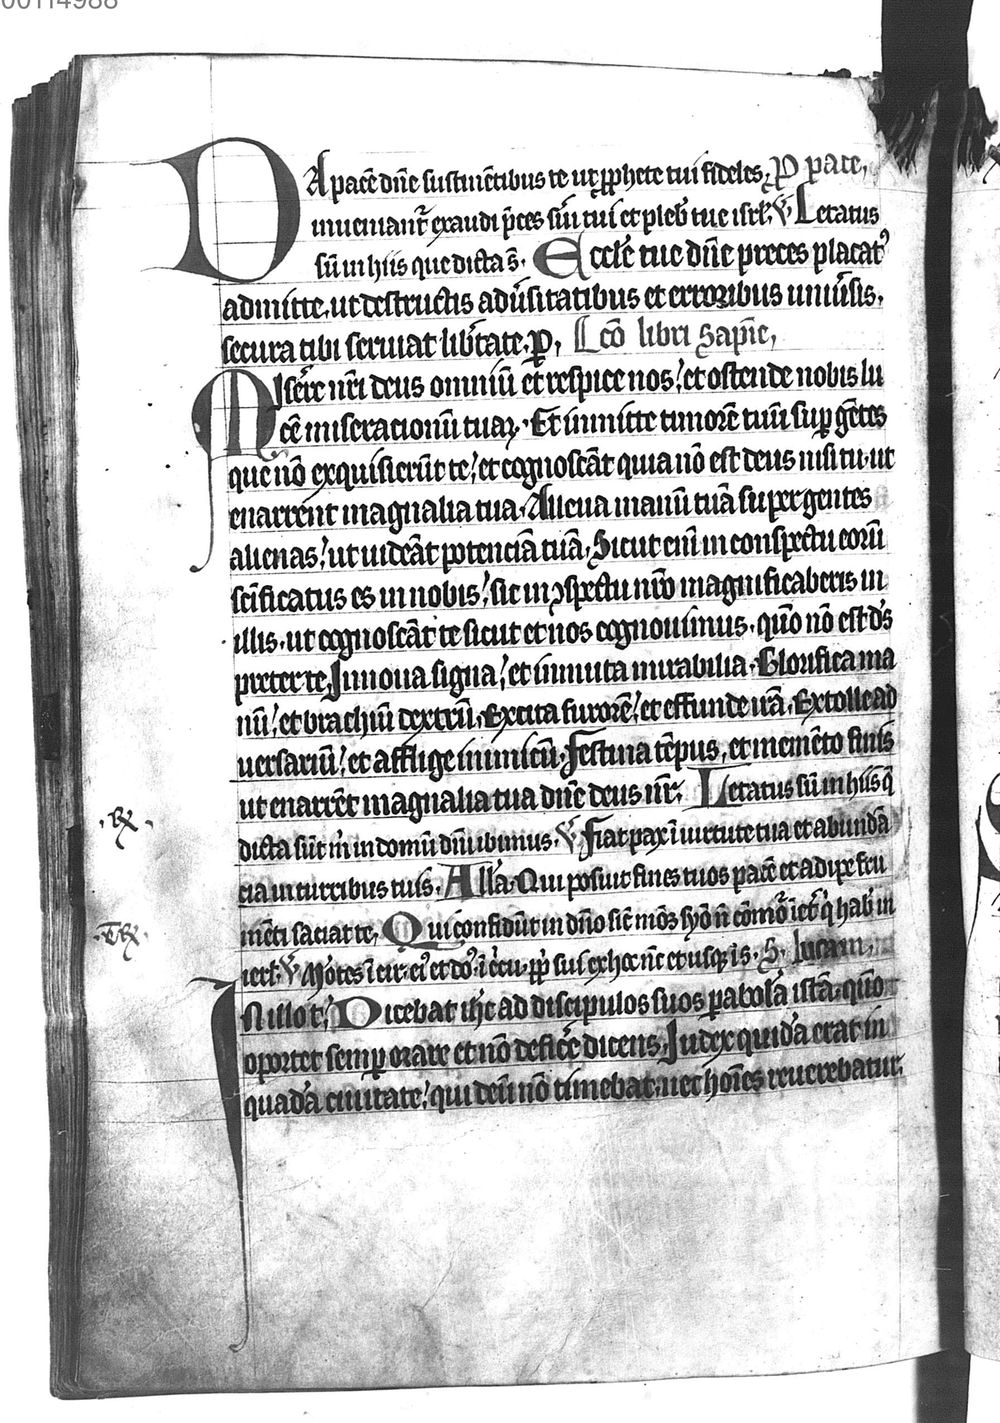 00114988
DA pacē dn̄e sustinētibus te ut ꝓphete tui fideles, P pace,
inueniant̄ exaudi p̄ces sūi tui et pleb̄ tue isrl̄. ℣ Letatus
sū in hiis que dicta s̄. Eccle̅ tue dn̄e preces placat᷒
admitte, ut destructis adu̅sitatibus et erroribus uniu̅sis,
secura tibi seruiat lib̅tate. ꝑ, Lcō libri sapīe,
Miserēre nr̄i deus omniū et respice nos, et ostende nobis lu
cē miseracionū tuaꝝ. Et inmitte timorē tuū suꝑ gētes
que nō exquisierūt te, et cognoscāt quia nō est deus nisi tu, ut
enarrent magnalia tua. Alleua manū tuā super gentes
alienas, ut uideāt potenciā tuā. Sicut eni̅ in conspectu eorū
sc̄ificatus es in nobis, sic in ꝯspectu nr̄o magnificaberis in
illis, ut cognoscāt te sicut et nos cognouimus, quō nō est ds̄
preter te. Innoua signa, et inmuta mirabilia. Glorifica ma
nū, et brachiū dextrū. Excita furorē, et effunde irā. Extolle ad
uersariū, et afflige inimicū. Festina tēpus, et memēto finis
ut enarrēt magnalia tua dn̄e deus nr̄. Letatus sū in hiis q̄
.℟. dicta sūt m̄ in domū dn̄i ibimus. ℣ Fiat pax ī uirtute tua et abundā
cia in turribus tuis. All̄a. Qui posuit fines tuos pacē et adipe fru
.T℟. mēti saciat te, Qui confidūt in dn̄o sic̄ mōs syō
ierl̄. ℣ Mōtes ī
In illo t̄. Dicebat ih̄c ad discipulos suos ꝑabolā istā, quō
oportet semꝑ orare et nō defice̅ dicens. Iudex quidā erat in
quadā ciuitate, qui deū nō timebat, nec hoīes reuerebatur.